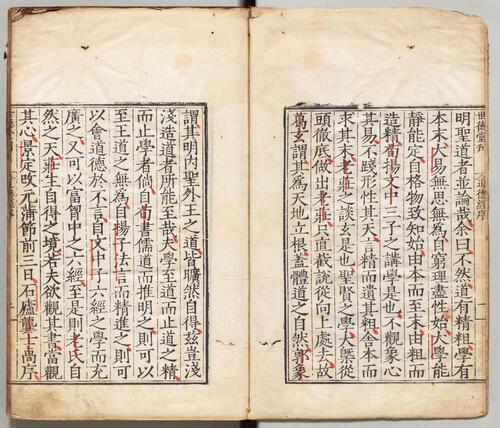 世德堂刊
道德經序
一
明聖道者並論哉余曰不然道有精粗學有
本末大易無思無為自窮理盡性始大學能
靜能定自格物致知始由本而至末由粗而
造精荀揚文中三子之講學是也不觀象心
其易不踐形性其天言精而遺其粗舍本而
求其末老莊之談玄是也聖賢之學大槩從
頭徹底做出老莊只直截說從向上處去故
葛玄謂其為天地立根蓋體道之自然郭象
謂其明內聖外王之道皆曠然自得茲豈淺
淺造道者所能至哉夫學至道而止道之精
而止學者倘自荀書儒道而推明之則可以
至王道之無為自揚子法言而精進之則可
以會道德於不言自文中子六經之學而充
廣之又可以富胷中之六經至是則老氏自
然之天莊生自得之境若夫欲觀其書當觀
其心景定改元清節前三日石廬龔士卨序